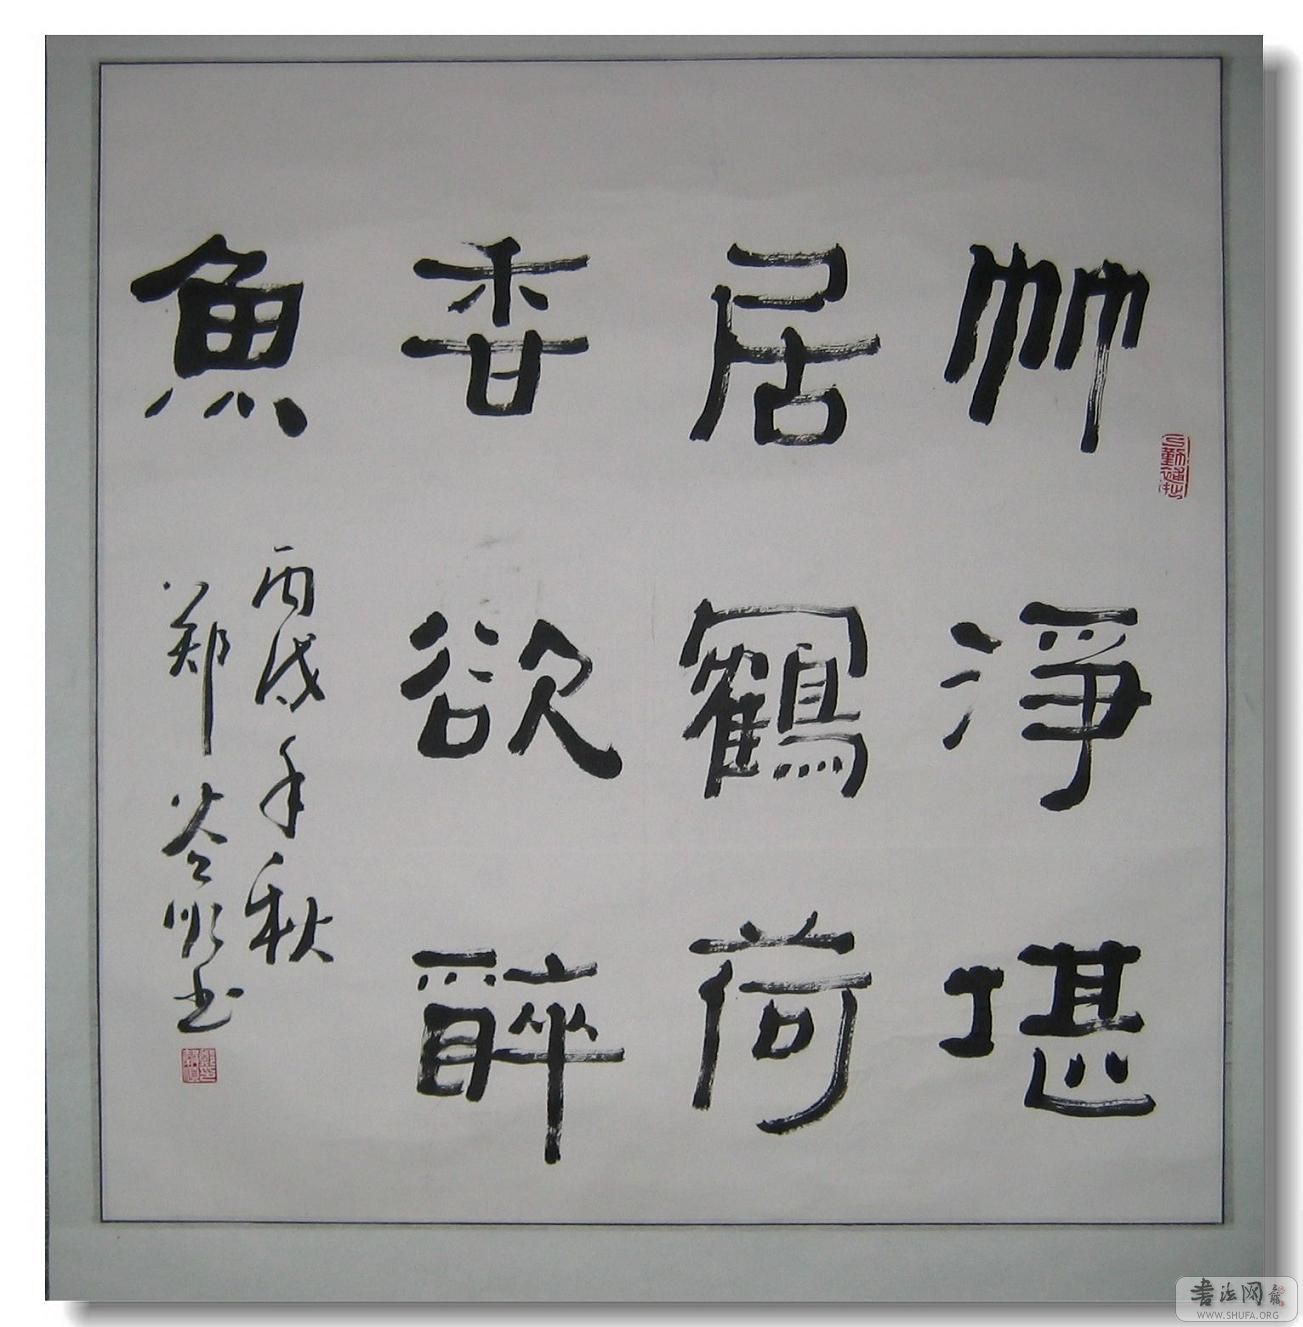 竹淨堪
居鶴荷
香欲醉
魚
丙戌年秋
鄭
书
书法网
WWW.SHUFA.ORG